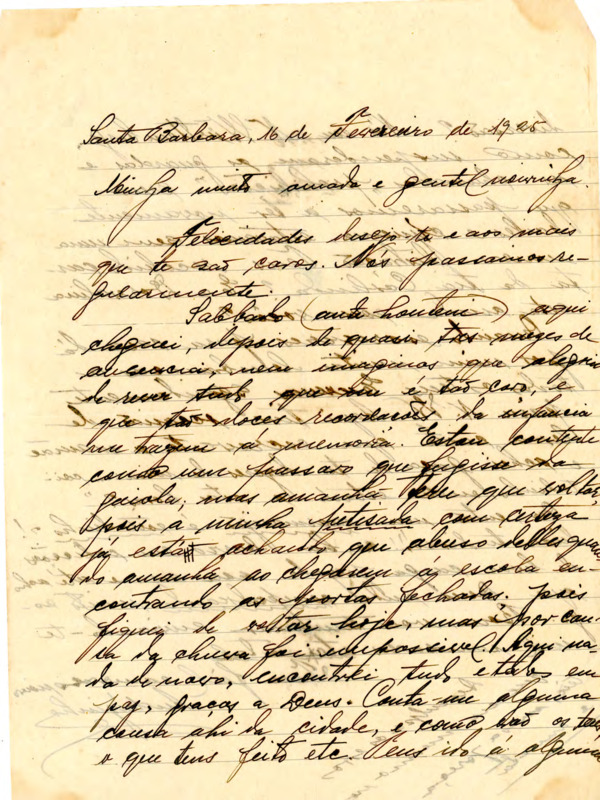 Santa Barbara, 16 de Fevereiro de 1925
Minha muito amada e gentil noivinha.
Felicidades desejo-te e aos mais
que te são caros. Nós passamos re-
gularmente.
Sabbado (ante hontem) aqui
cheguei, depois de quasi tres mezes de
ausencia, nem imaginas que alegria
de rever tudo que me é tão caro, e
que tão doces recordações da infancia
me trazem á memoria. Estou contente
como um passaro que fugisse da
gaiola, mas amanhã tenho que voltar,
pois a minha petisada com certeza
já está achando que abuso delles quan
do amanha ao chegarem á escola en-
contrando as portas fechadas. pois
fiquei de voltar hoje, mas por cau-
sa da chuva foi impossivel. Aqui na-
da de novo, encontrei tudo e todos em
paz, graças a Deus. Conta-me alguma
cousa ahi da cidade, e como vão os teus,
o que tens feito etc. Tens ido á alguma